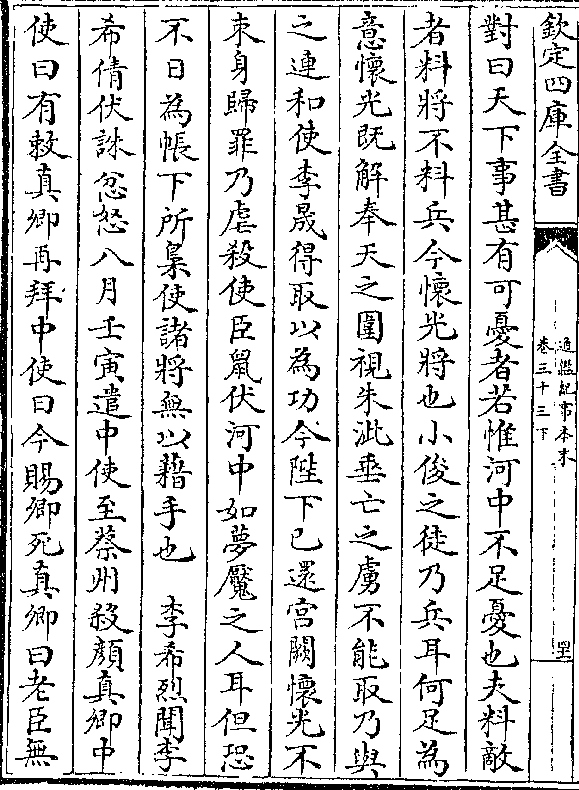 欽定四庫全書
通鑑紀事本末
卷三十三下
四十
對曰天下事甚有可憂者若惟河中不足憂也夫料敵
者料將不料兵今懷光將也小俊之徒乃兵耳何足為
意懷光既解奉天之圍視朱泚垂亡之虜不能取乃與
之連和使李晟得取以為功今陛下已還宮闕懷光不
束身歸罪乃虐殺使臣鼠伏河中如夢魘之人耳但恐
不日為帳下所梟使諸將無以藉手也　李希烈聞李
希倩伏誅忿怒八月壬寅遣中使至蔡州殺顏真卿中
使曰有敕真卿再拜中使曰今賜卿死真卿曰老臣無